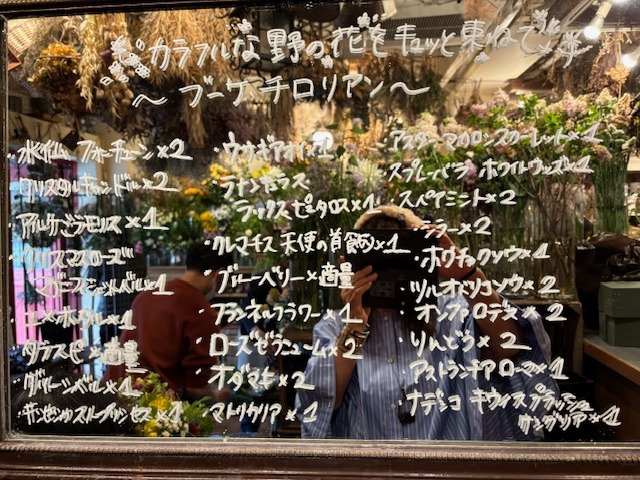 カラフルな野の花をキュッと束ねて
〜ブーケ・チロリアン〜
・水仙 フォーチューン×2
・クリスタルキャンドル×2
・アルケミラモリス×1
・クリスマスローズ
×1
・ユメホタル×1
・タラスピ×適量
・グリーンベル×1
×1
・ウサギアオイ×1
・ラナンキュラス
ラックスピタロス×1
・クレマチス 天使の首飾り×1
・ブルーベリー×適量
・フランネルフラワー×1
・ローズゼラニューム×2
・オダマキ×2
・マトリカリア×1
・アスター マカロンスカーレット×1
・スプレーバラ ホワイトウッズ×1
・スペアミント×2
・シラー×2
・ホウチャクソウ×1
・ツルオドリコソウ×2
・オンファロデス×2
・りんどう×2
・アストランチア ローマ×1
・ナデシコ キウイスプラッシュ
サングリア×1